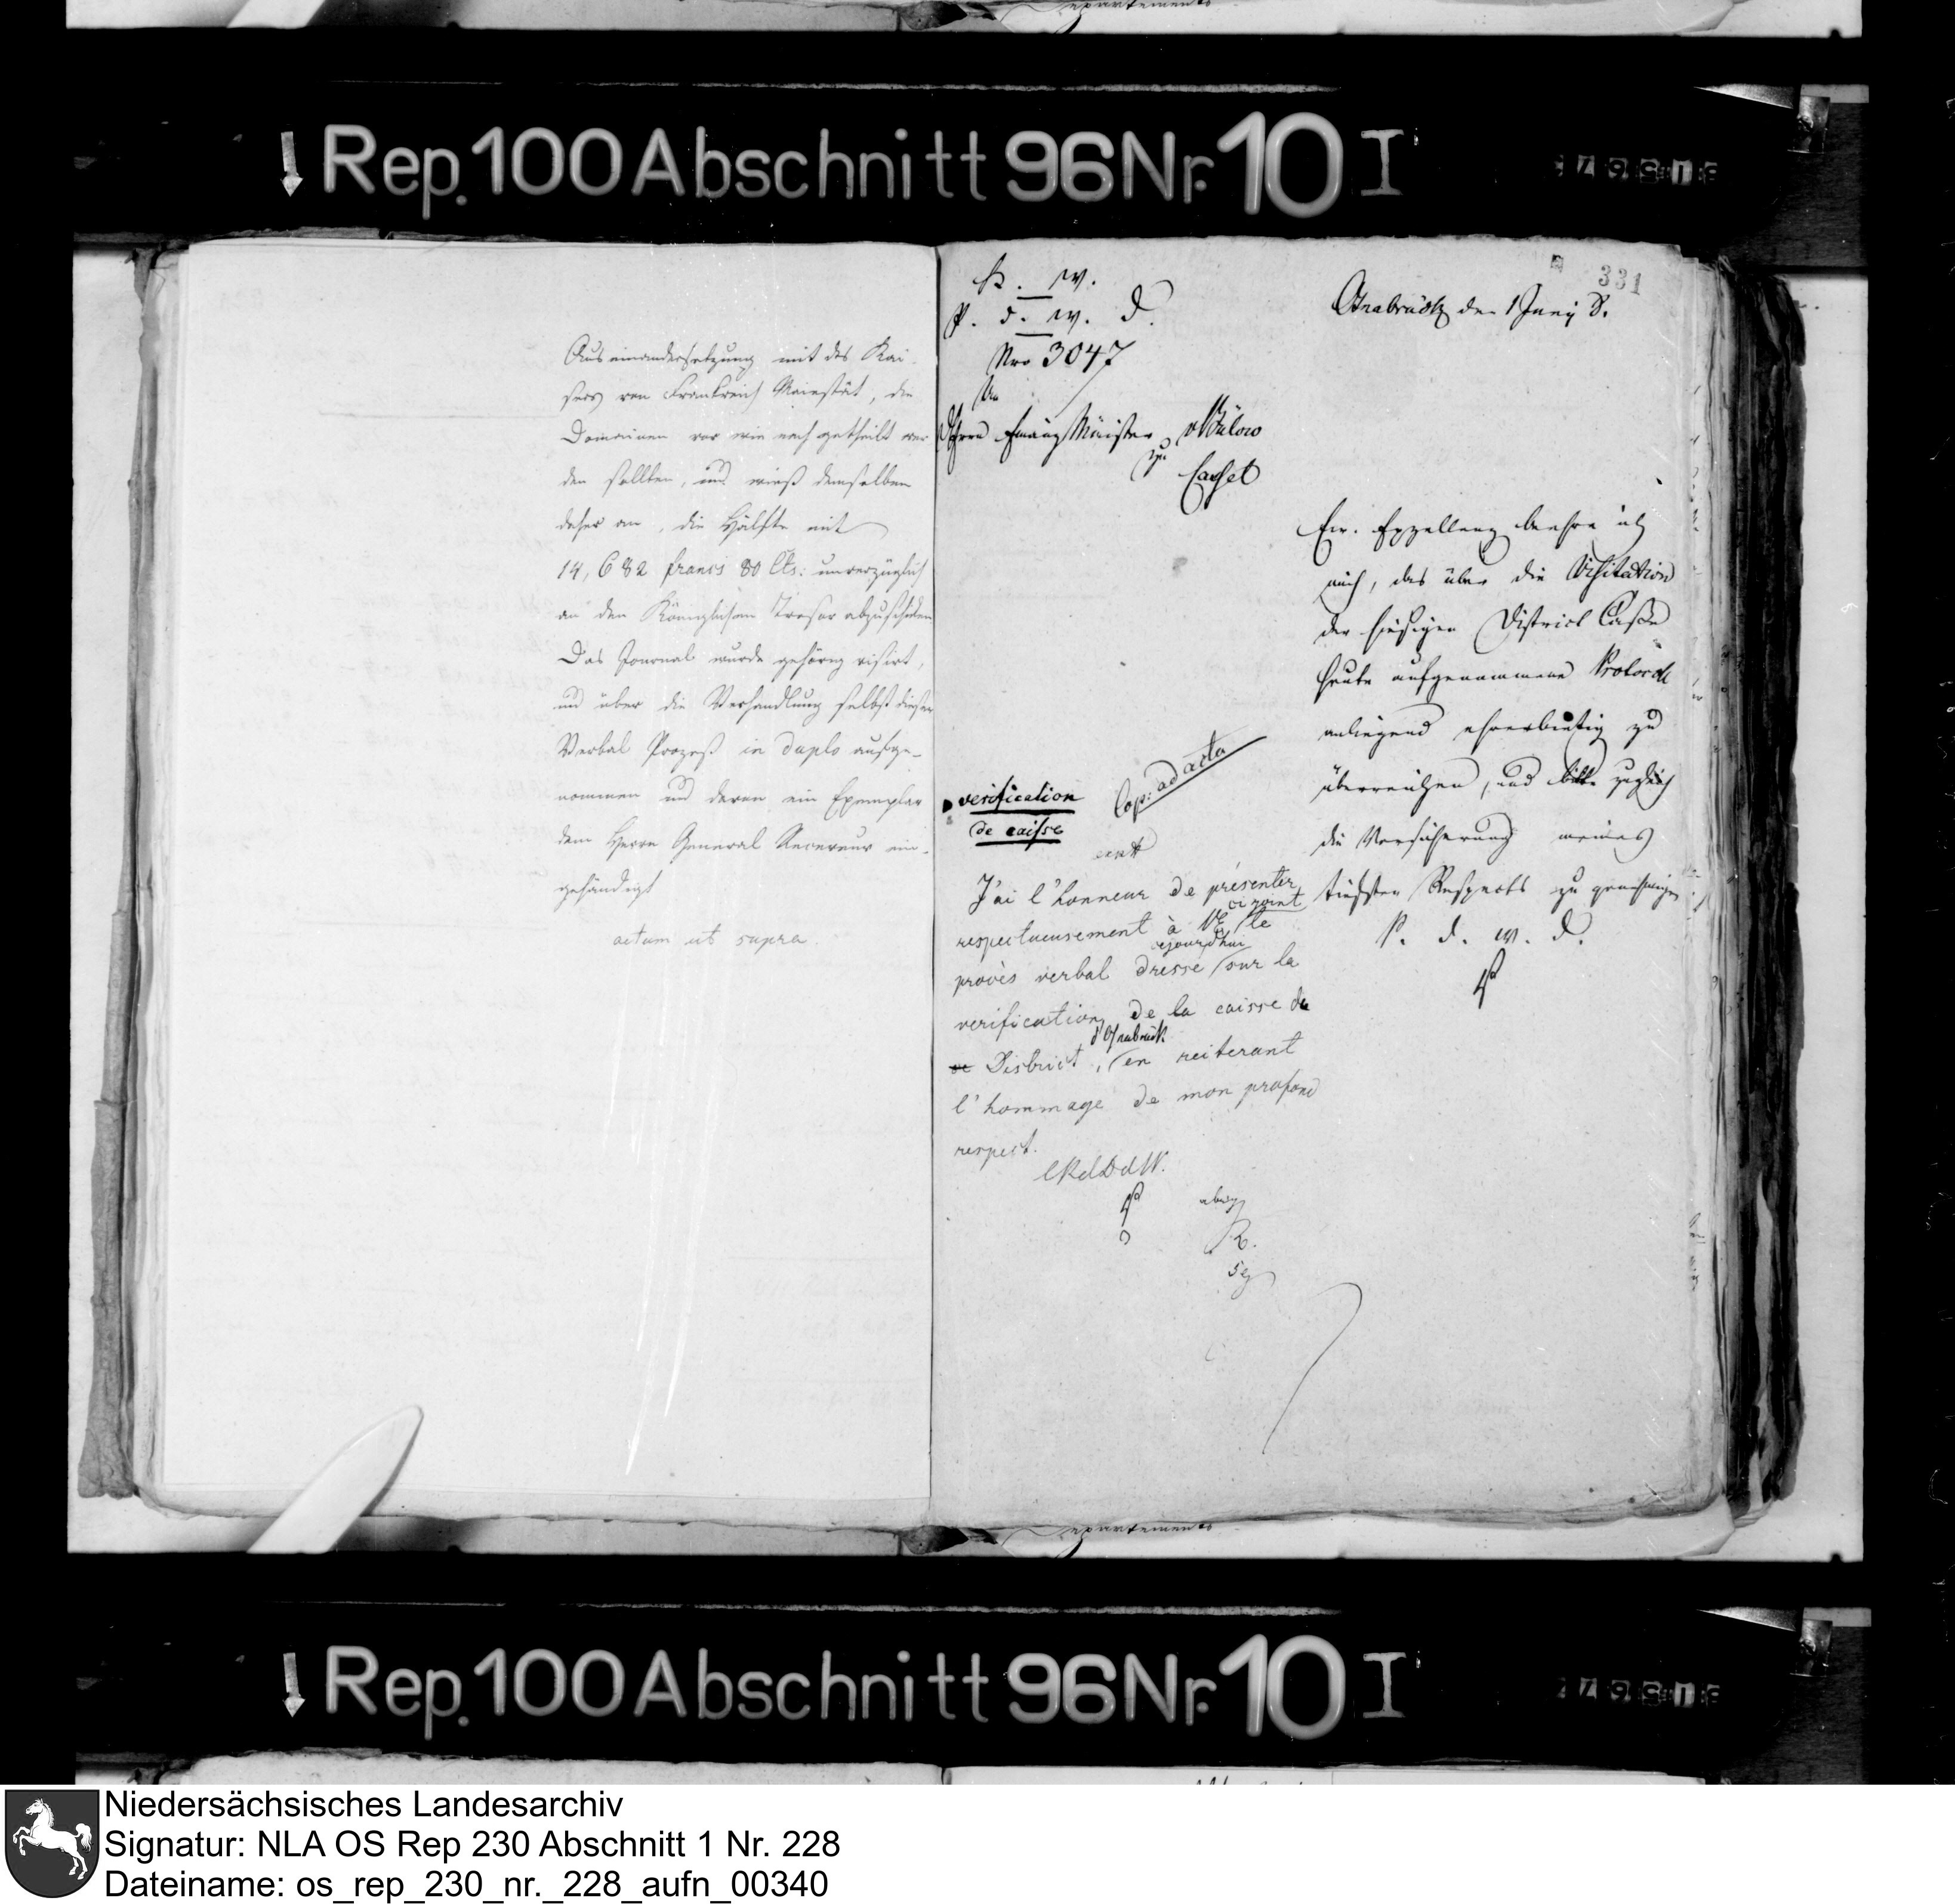 epartements
Rep. 100 Abschnitt 96 Nr. 10 I
Auseinandersetzung mit des Kai-
sers von Frankreich Maiestät, die
Domainen vor wie nach getheilt wer
den sollten, und wieß demselben
daher an, die Hälfte mit
14,682 francs 80 Cts: unverzüglich
an den Königlichen Tresor abzusenden
Das Journal wurde gehörig visirt,
und über die Verhandlung selbst dieser
Verbal Prozeß in duplo aufge-
nommen und davon ein Exemplar
dem Herrn General Receveur ein-
gehändigt
actum ut supra.
331
K. W.
P. d. W. D.
Nro 3047
An
Herrn Finanz Minister v Bülow
zu
Cassel
verification
de caisse
Cop: ad acta
J'ai l'honneur de présenter
ci joint
respectueusement à VE le
cejourd'hui
procès verbal dressé sur la
verification de la caisse du
d'Osnabrück
District, en reiterant
l'hommage de mon profond
respect.
R.
Osnabrück den 1 Juny 8.
Ew. Exzellenz beehre ich
mich, das über die Visitation
der hiesigen District Casse
heute aufgenommene Protocoll
anliegend ehrerbietig zu
überreichen, und bitte zugleich
die Versicherung meines
tiefsten Respects zu genehmigen
P. d. W. D.
epartements
Rep. 100 Abschnitt 96 Nr. 10 I
Niedersächsisches Landesarchiv
Signatur: NLA OS Rep 230 Abschnitt 1 Nr. 228
Dateiname: os_rep_230_nr._228_aufn_00340